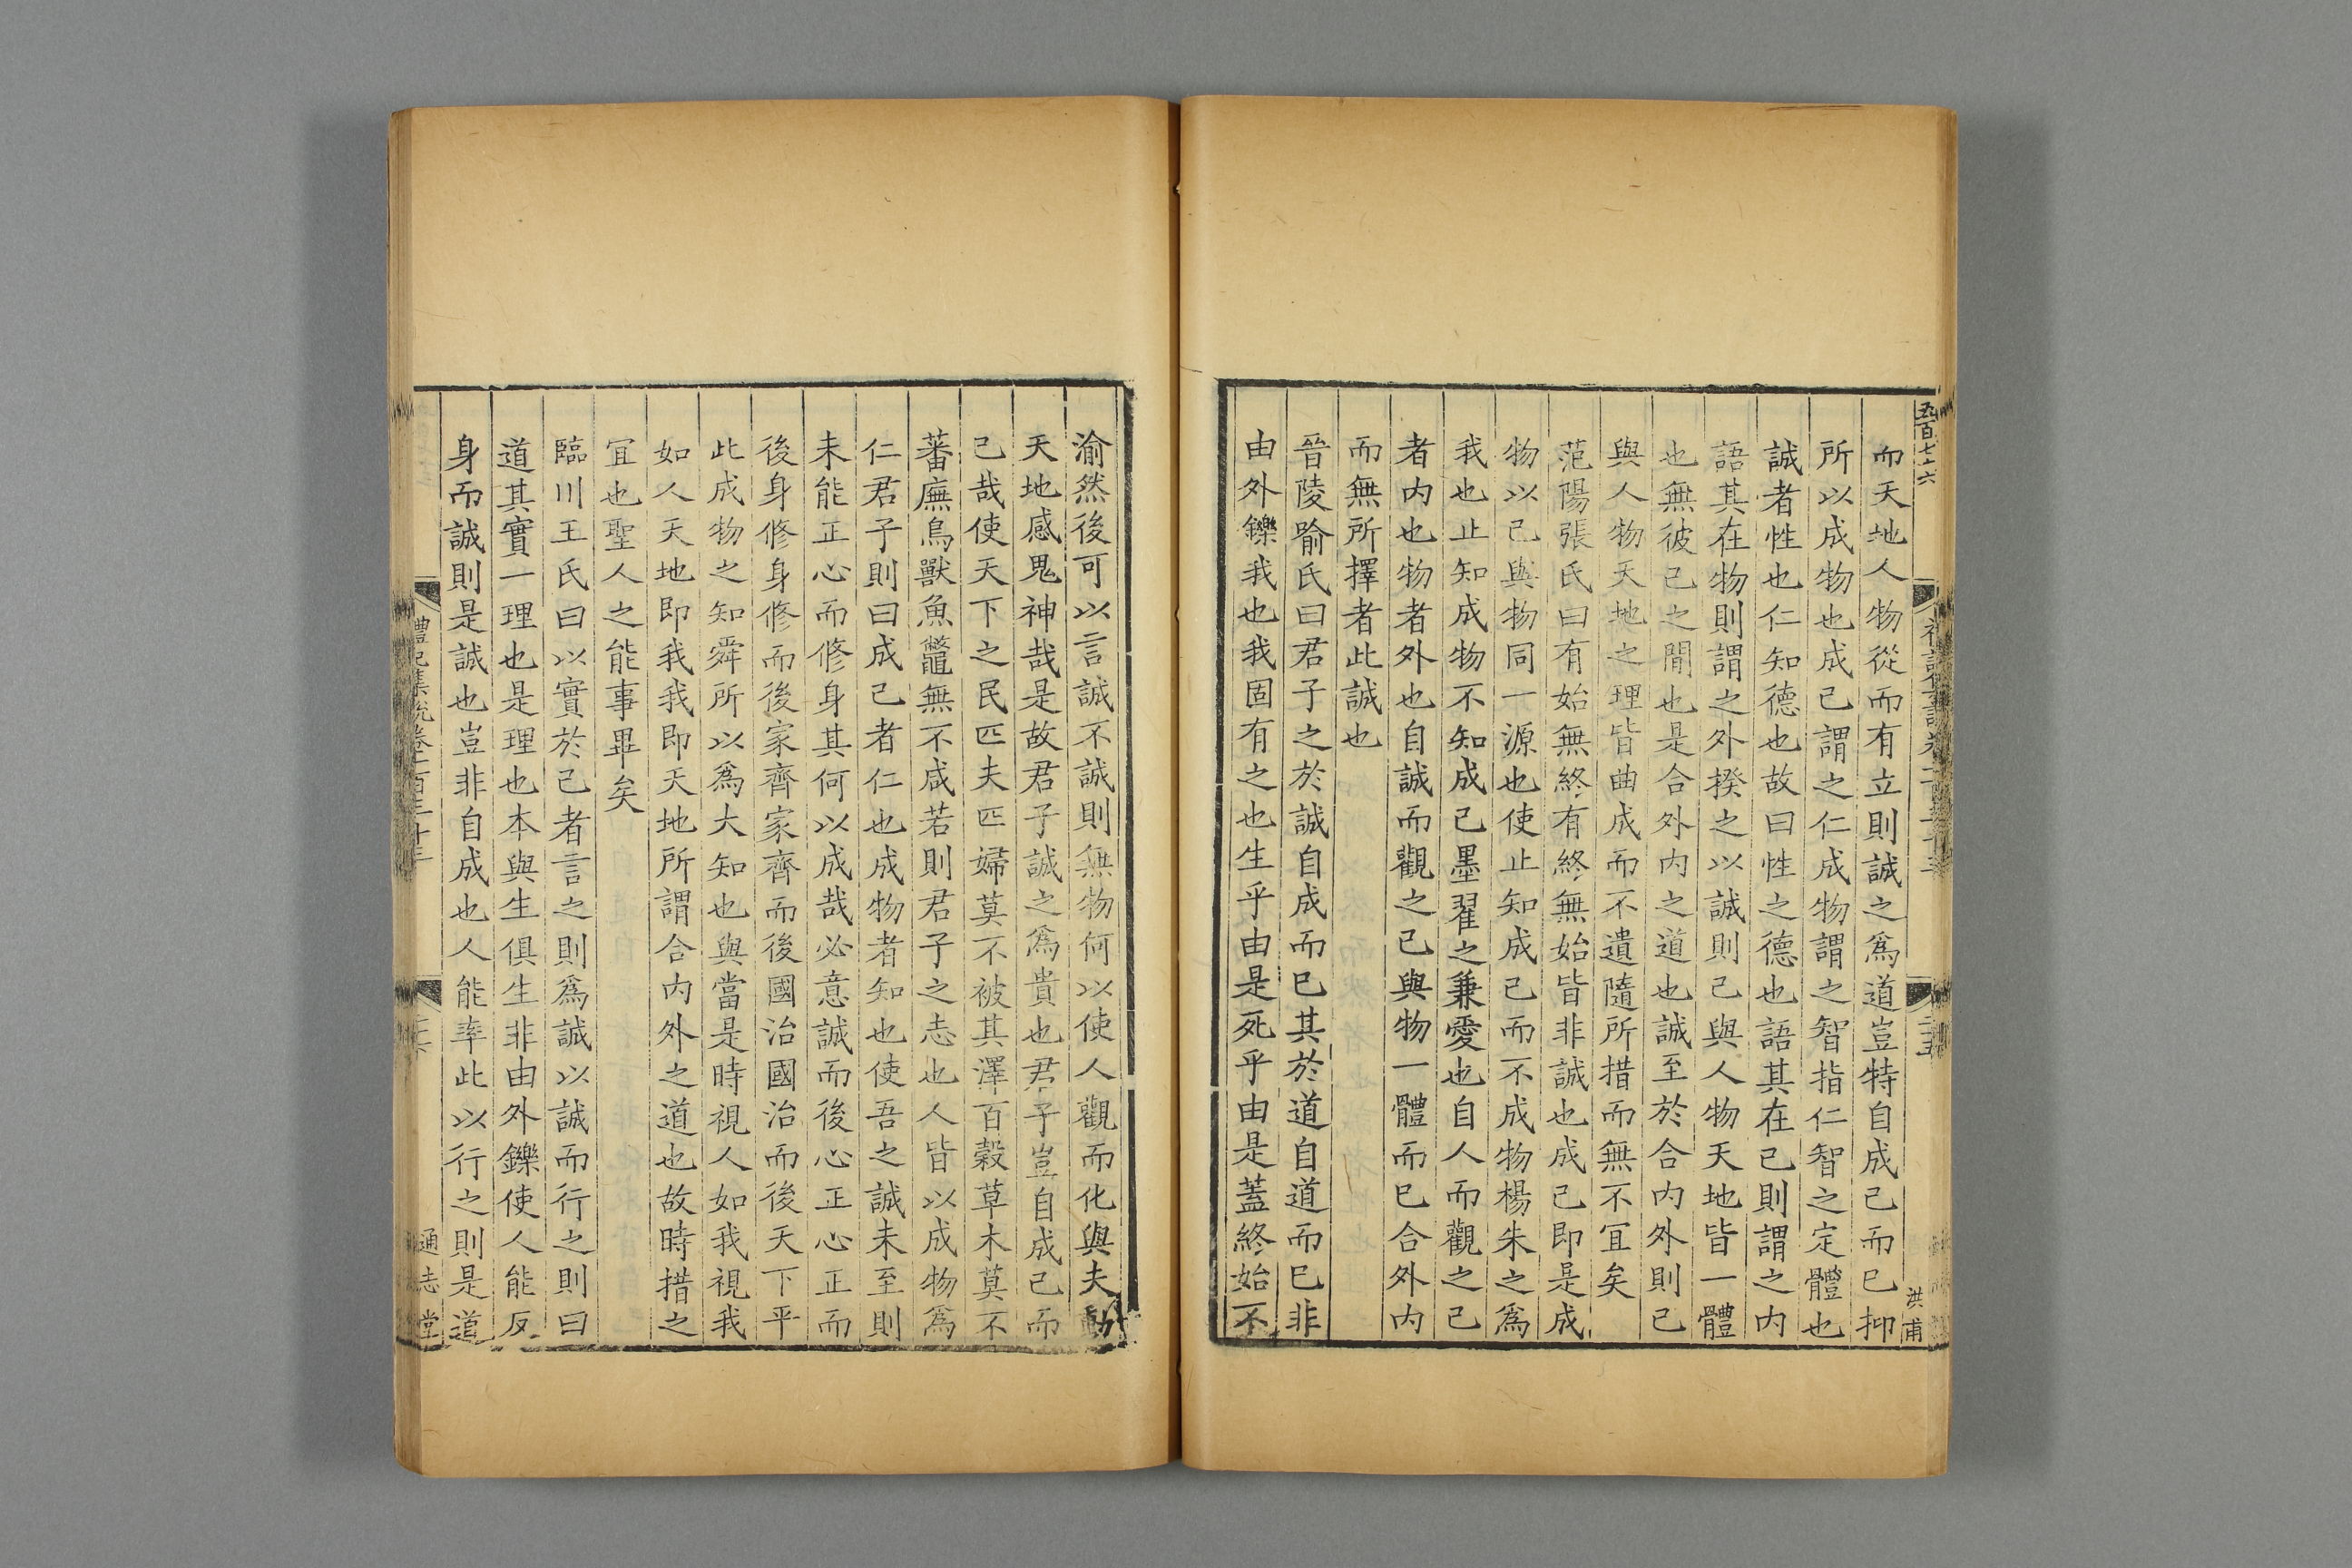 而天地人物從而有立則誠之爲道豈特自成己而已抑
所以成物也成己謂之仁成物謂之智指仁智之定體也
誠者性也仁知德也故曰性之德也語其在己則謂之内
語其在物則謂之外揆之以誠則己與人物天地皆一體
也無彼己之間也是合外内之道也誠至於合内外則已
與人物天地之理皆曲成而不遺隨所措而無不宜矣
范陽張氏曰有始無終有終無始皆非誠也成己即是成
物以己與物同一源也使止知成己而不成物楊朱之爲
我也止知成物不知成己墨翟之兼愛也自人而觀之己
者内也物者外也自誠而觀之己與物一體而已合外内
而無所擇者此誠也
晉陵喻氏曰君子之於誠自成而已其於道自道而已非
由外鑠我也我固有之也生乎由是死乎由是蓋終始不
渝然後可以言誠不誠則無物何以使人觀而化與夫動
天地感鬼神哉是故君子誠之爲貴也君子豈自成己而
己哉使天下之民匹夫匹婦莫不被其澤百穀草木莫不
蕃廡鳥獸魚鼈無不咸若則君子之志也人皆以成物爲
仁君子則曰成己者仁也成物者知也使吾之誠未至則
未能正心而修身其何以成哉必意誠而後心正心正而
後身修身修而後家齊家齊而後國治國治而後天下平
此成物之知舜所以爲大知也與當是時視人如我視我
如人天地即我我即天地所謂合内外之道也故時措之
宜也聖人之能事畢矣
臨川王氏曰以實於己者言之則爲誠以誠而行之則曰
道其實一理也是理也本與生俱生非由外鑠使人能反
身而誠則是誠也豈非自成也人能率此以行之則是道
禮記集說卷一百三十三
通志堂
五百七十六
洪甫